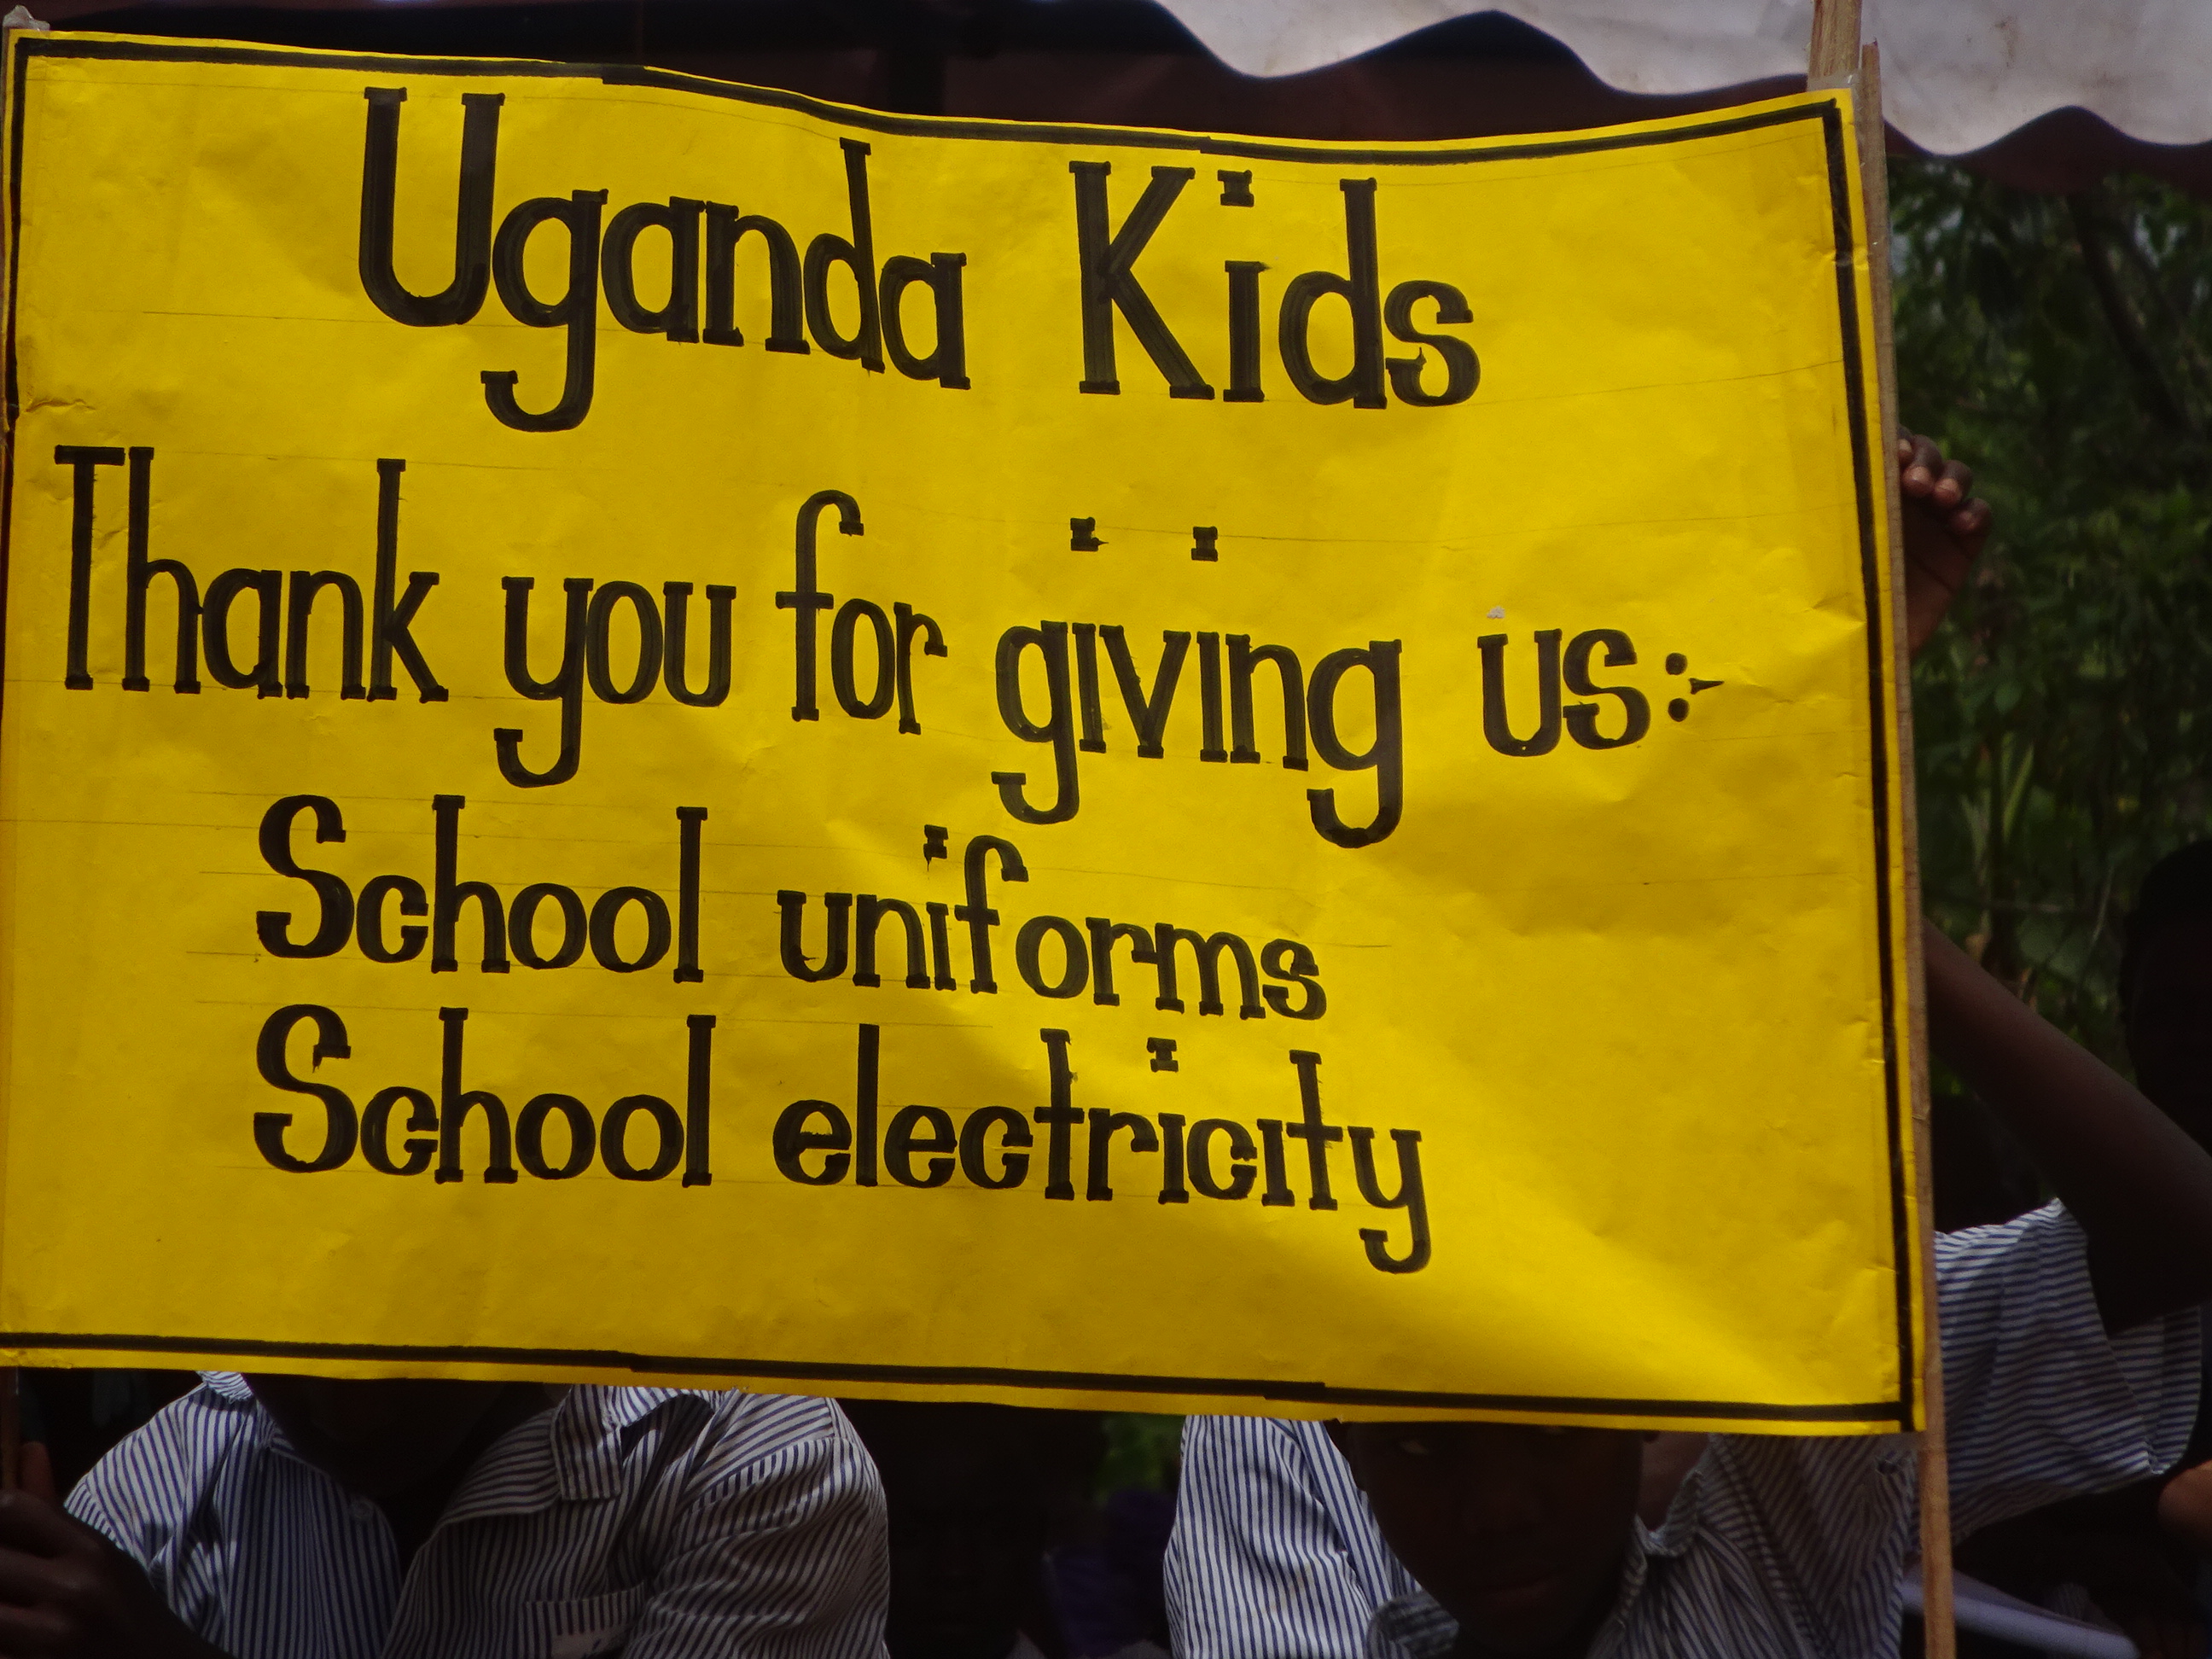 Uganda Kids
Thank you for giving us:-
School uniforms
School electricity